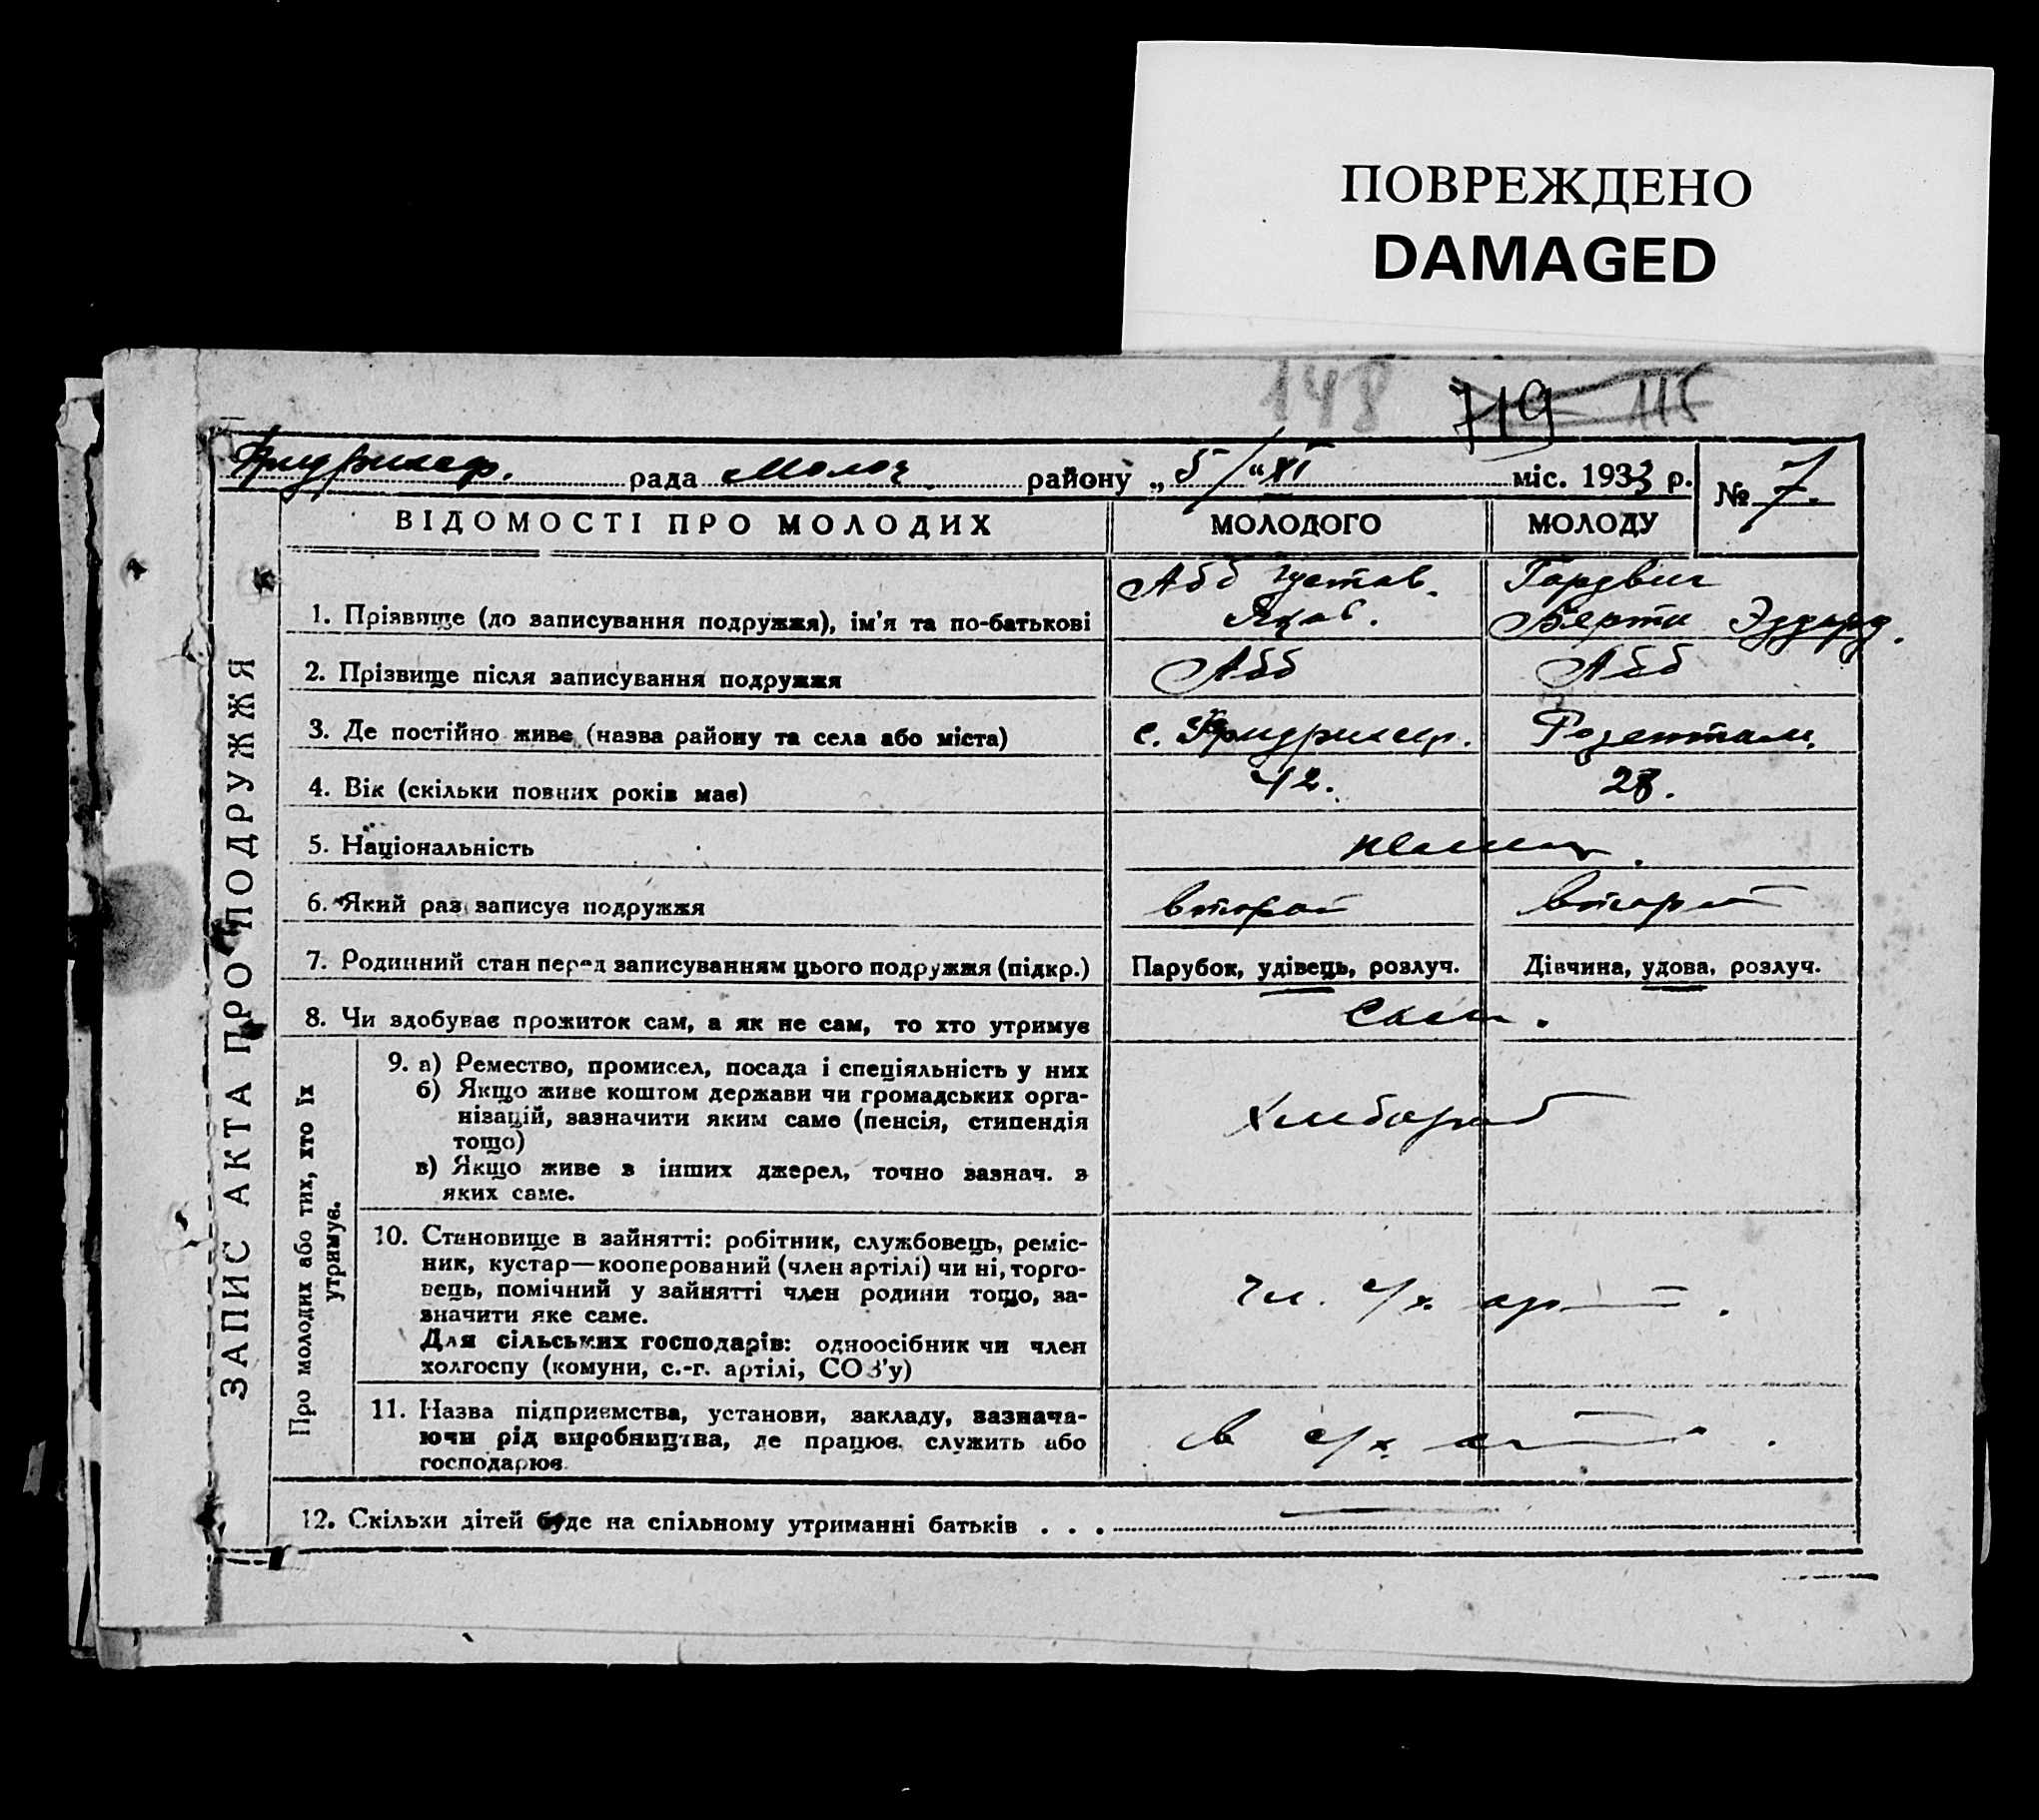 ПОВРЕЖДЕНО
DAMAGED
148 719 115
Фридрихсф. рада Молоч. району „5/“ XI міс. 1933 р. № 7.
ВІДОМОСТІ ПРО МОЛОДИХ МОЛОДОГО МОЛОДУ
ЗАПИС АКТА ПРО ПОДРУЖЖЯ
Абб Густав. Гардвиг
1. Прізвище (до записування подружжя), ім'я та по-батькові Яков. Берта Эдуард.
2. Прізвище після записування подружжя Абб Абб
3. Де постійно живе (назва району та села або міста) с. Фридрихсф. Розенталь.
4. Вік (скільки повних років має) 42. 28.
5. Національність немец.
6. Який раз записує подружжя второй второй
7. Родинний стан перед записуванням цього подружжя (підкр.) Парубок, удівець, розлуч. Дівчина, удова, розлуч.
8. Чи здобуває прожиток сам, а як не сам, то хто утримує Сам.
Про молодих або тих, хто їх
утримує.
9. а) Ремество, промисел, посада і спеціяльність у них
б) Якщо живе коштом держави чи громадських орга-
нізацій, зазначити яким саме (пенсія, стипендія
тощо)
в) Якщо живе з інших джерел, точно зазнач. з
яких саме.
Хлебороб
10. Становище в зайнятті: робітник, службовець, реміс-
ник, кустар—кооперований (член артілі) чи ні, торго-
вець, помічний у зайнятті член родини тощо, за-
значити яке саме.
Для сільських господарів: одноосібник чи член
холгоспу (комуни, с.-г. артілі, СОЗ'у)
Чл. с/х арт.
11. Назва підприємства, установи, закладу, зазнача-
ючи рід виробництва, де працює, служить або
господарює
в с/х
12. Скільки дітей буде на спільному утриманні батьків . . .